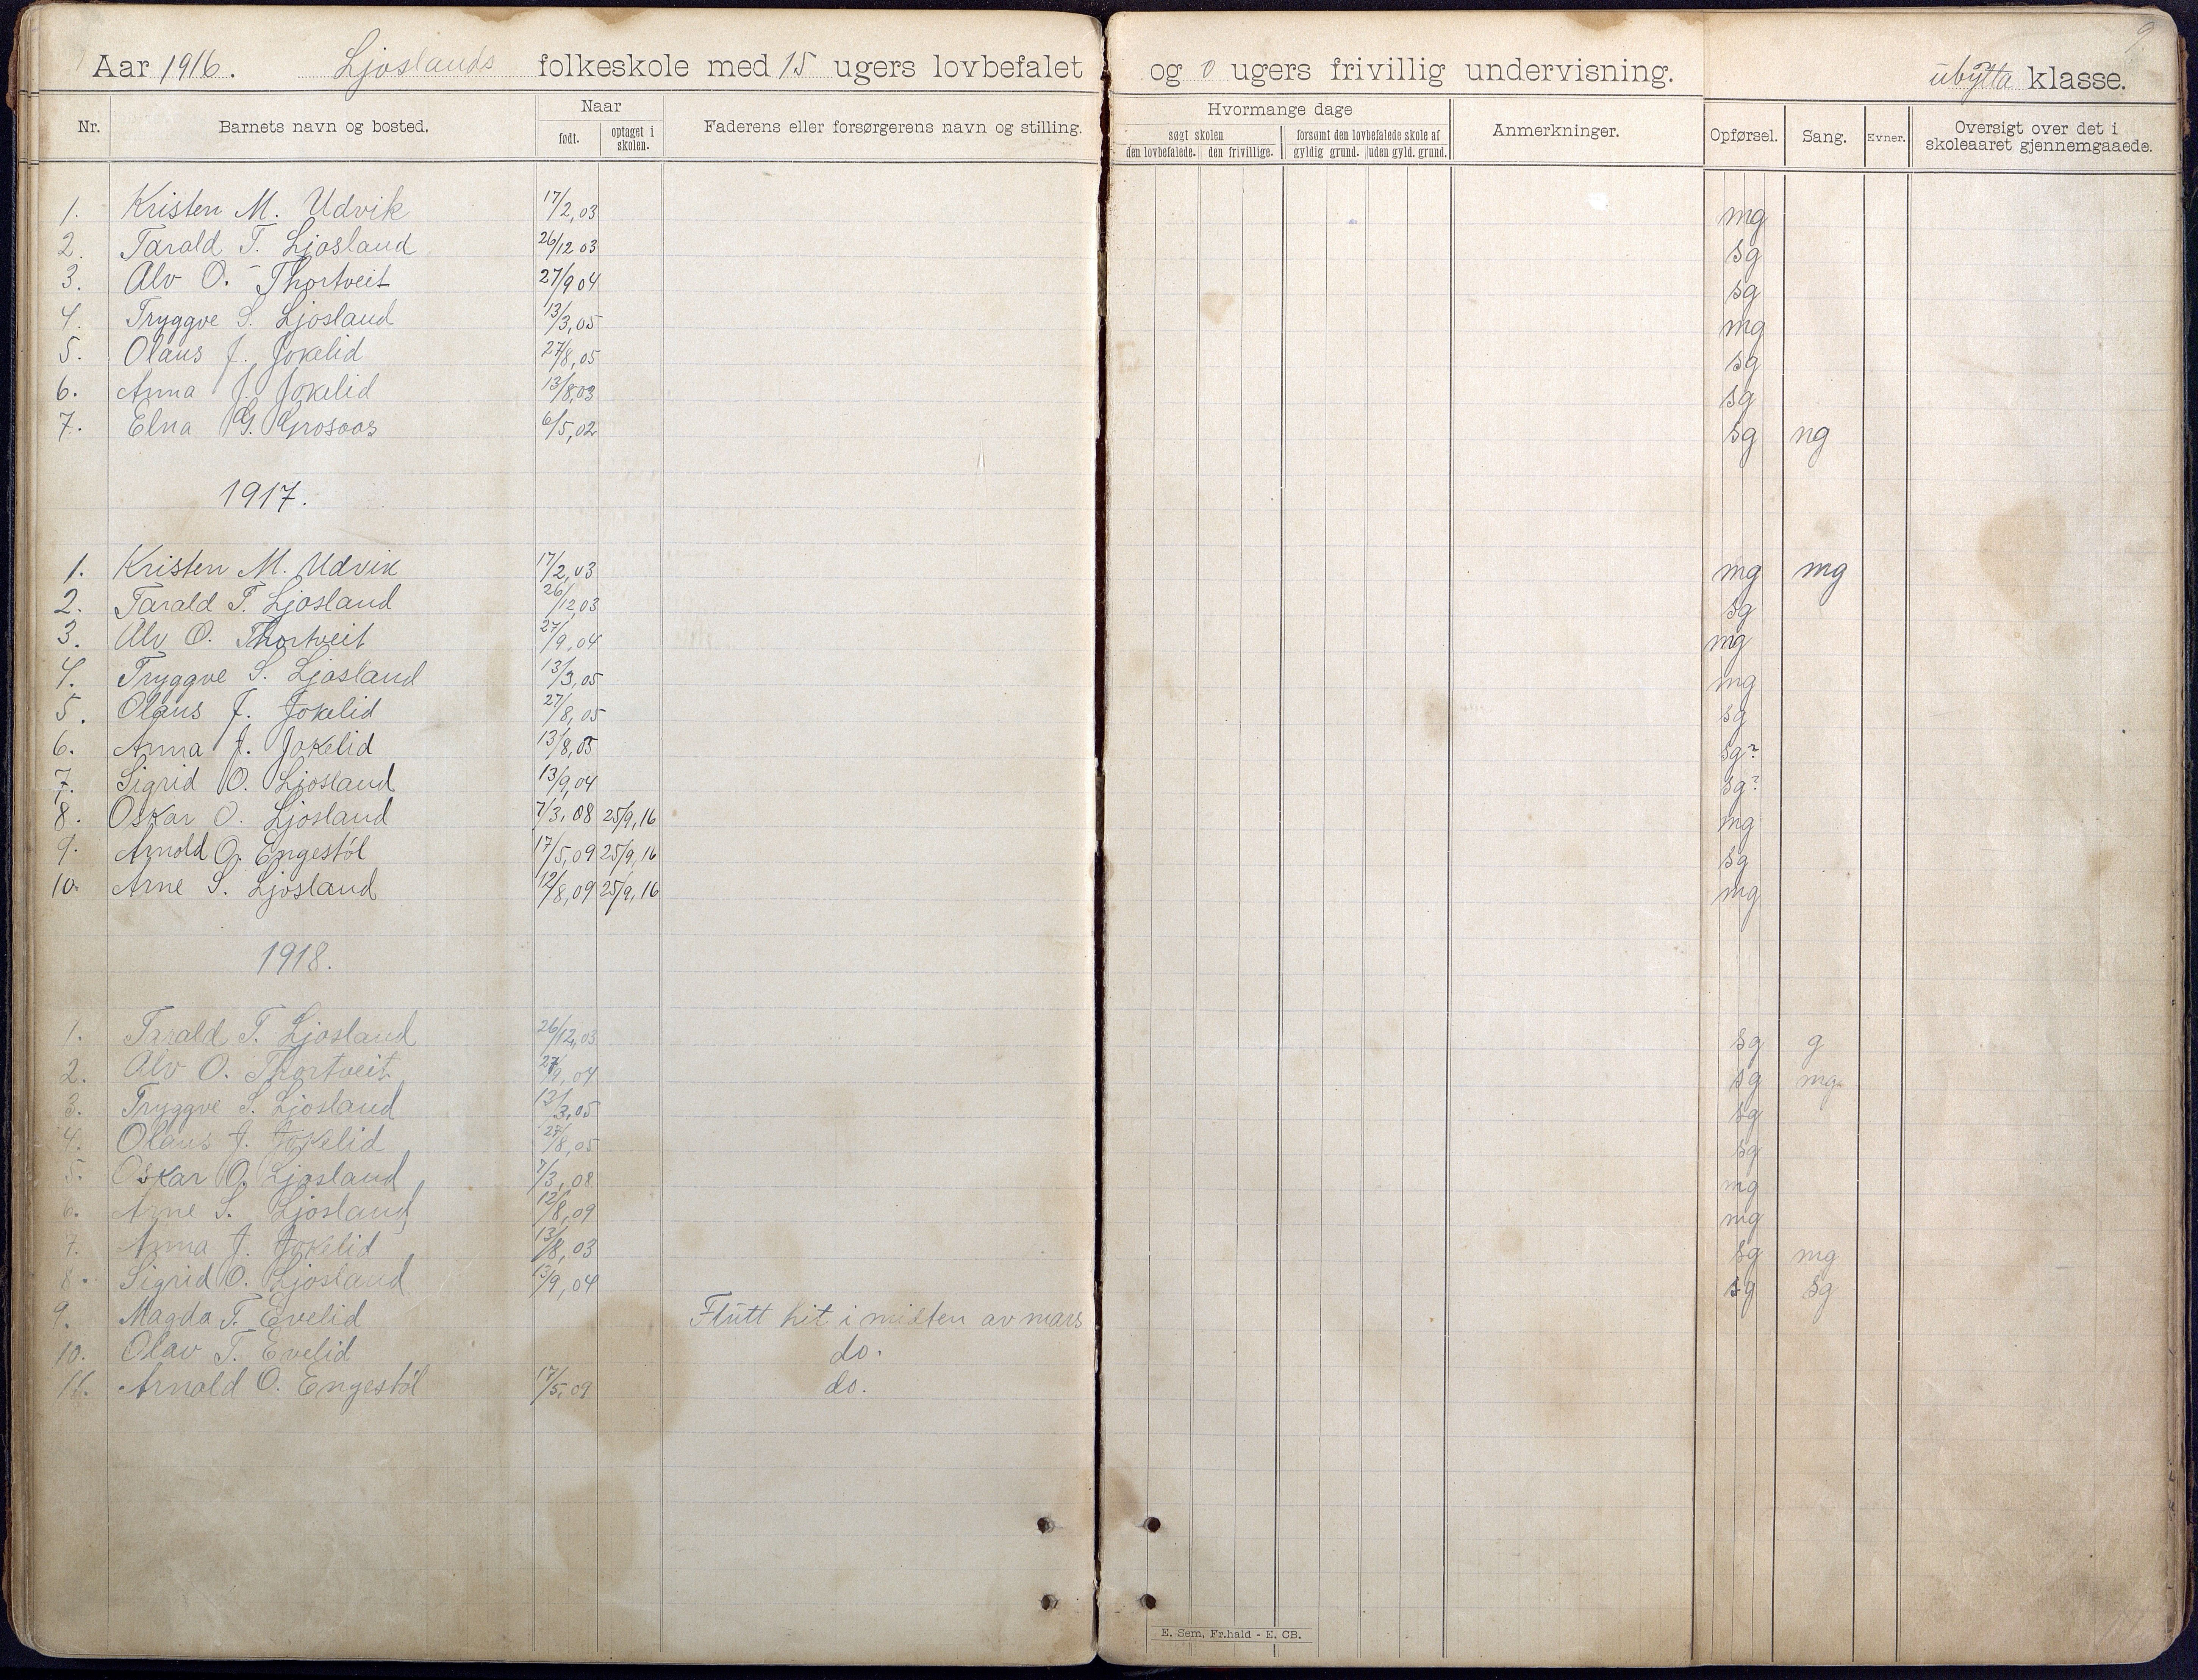 Aar 1916. Ljoslands folkeskole med 15 ugers lovbefalet og 0 ugers frivillig undervisning. ubytta klasse.
9
Nr. Barnets navn og bosted. Naar født. optaget i skolen. Faderens eller forsørgerens navn og stilling. Hvormange dage søgt skolen den lovbefalede. den frivillige. forsømt den lovbefalede skole af gyldig grund. uden gyld. grund. Anmerkninger. Opførsel. Sang. Evner. Oversigt over det i skoleaaret gjennemgaaede.
1. Kristen M. Udvik 17/2, 03 mg
2. Tarald T. Ljosland 26/12 03 sg
3. Alv O. Thortveit 27/9 04 sg
4. Tryggve S. Ljosland 13/3, 05 mg
5. Olaus J. Jokelid 27/8, 05 sg
6. Anna J. Jokelid 13/8, 03 sg
7. Elna G. Grosaas 6/5, 02 sg ng
1917.
1. Kristen M. Udvik 17/2, 03 mg mg
2. Tarald T. Ljosland 26/12, 03 sg
3. Alv O. Thortveit 27/9, 04 mg
4. Tryggve S. Ljosland 13/3, 05 mg
5. Olaus J. Jokelid 27/8, 05 sg
6. Anna J. Jokelid 13/8, 03 sg?
7. Sigrid O. Ljosland 13/9, 04 sg?
8. Oskar O. Ljosland 7/3, 08 25/9, 16 mg
9. Arnold O. Engestöl 17/5, 09 25/9, 16 sg
10. Arne S. Ljosland 12/8, 09 25/9, 16 mg
1918.
1. Tarald T. Ljosland 26/12, 03 sg g
2. Alv O. Thortveit 27/9, 04 sg mg.
3. Tryggve S. Ljosland 13/3, 05 sg
4. Olaus J. Jokelid 27/8, 05 sg
5. Oskar O. Ljosland 7/3, 08 mg
6. Arne S. Ljosland 12/8, 09 mg
7. Anna J. Jokelid 13/8, 03 sg mg
8. Sigrid O. Ljosland 13/9, 04 sg sg
9. Magda T. Evelid Flutt hit i midten av mars
10. Olav T. Evelid do.
11. Arnold O. Engestöl 17/5, 09 do.
E. Sem, Fr.hald - E. CB.